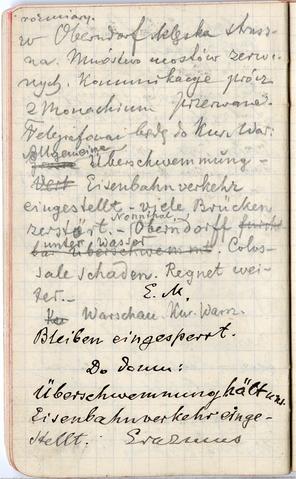 rozmiary.
w Oberndorf klęska strasz-
na. Mnóstwo mostów zerwa-
nych. Komunikacje prócz
z Monachium przerwane.
Telegrafować będę do Kur. War:
Allgemeine
Überschwemmung -
Eisenbahnverkehr
eingestellt - viele Brücken
Nonnthal,
zerstört. - Oberndorff furcht-
unter Wasser
bar Überschwemmt. Colos-
sale Schäden. Regnet wei-
ter. - E. M.
Warschau. Kur. Warsz.
Bleiben eingesperrt.
Do domu:
Überschwemmung hält uns.
Eisenbahnverkehr einge-
stellt. Erazmus